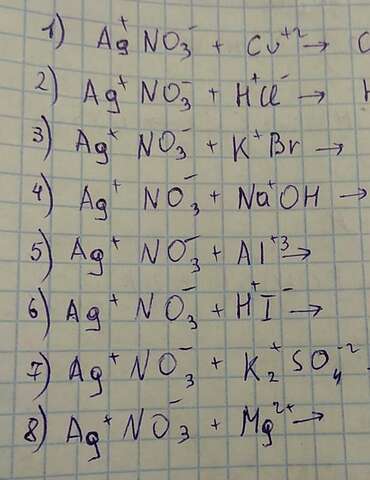 1) Ag⁺NO₃⁻ + Cu⁺² → C
2) Ag⁺ NO₃⁻ + H⁺Cl⁻ →
3) Ag⁺ NO₃⁻ + K⁺Br →
4) Ag⁺ NO₃⁻ + Na⁺OH →
5) Ag⁺ NO₃⁻ + Al⁺³ →
6) Ag⁺ NO₃⁻ + H⁺I⁻ →
7) Ag⁺ NO₃⁻ + K₂⁺SO₄⁻²
8) Ag⁺ NO₃⁻ + Mg²⁺ →